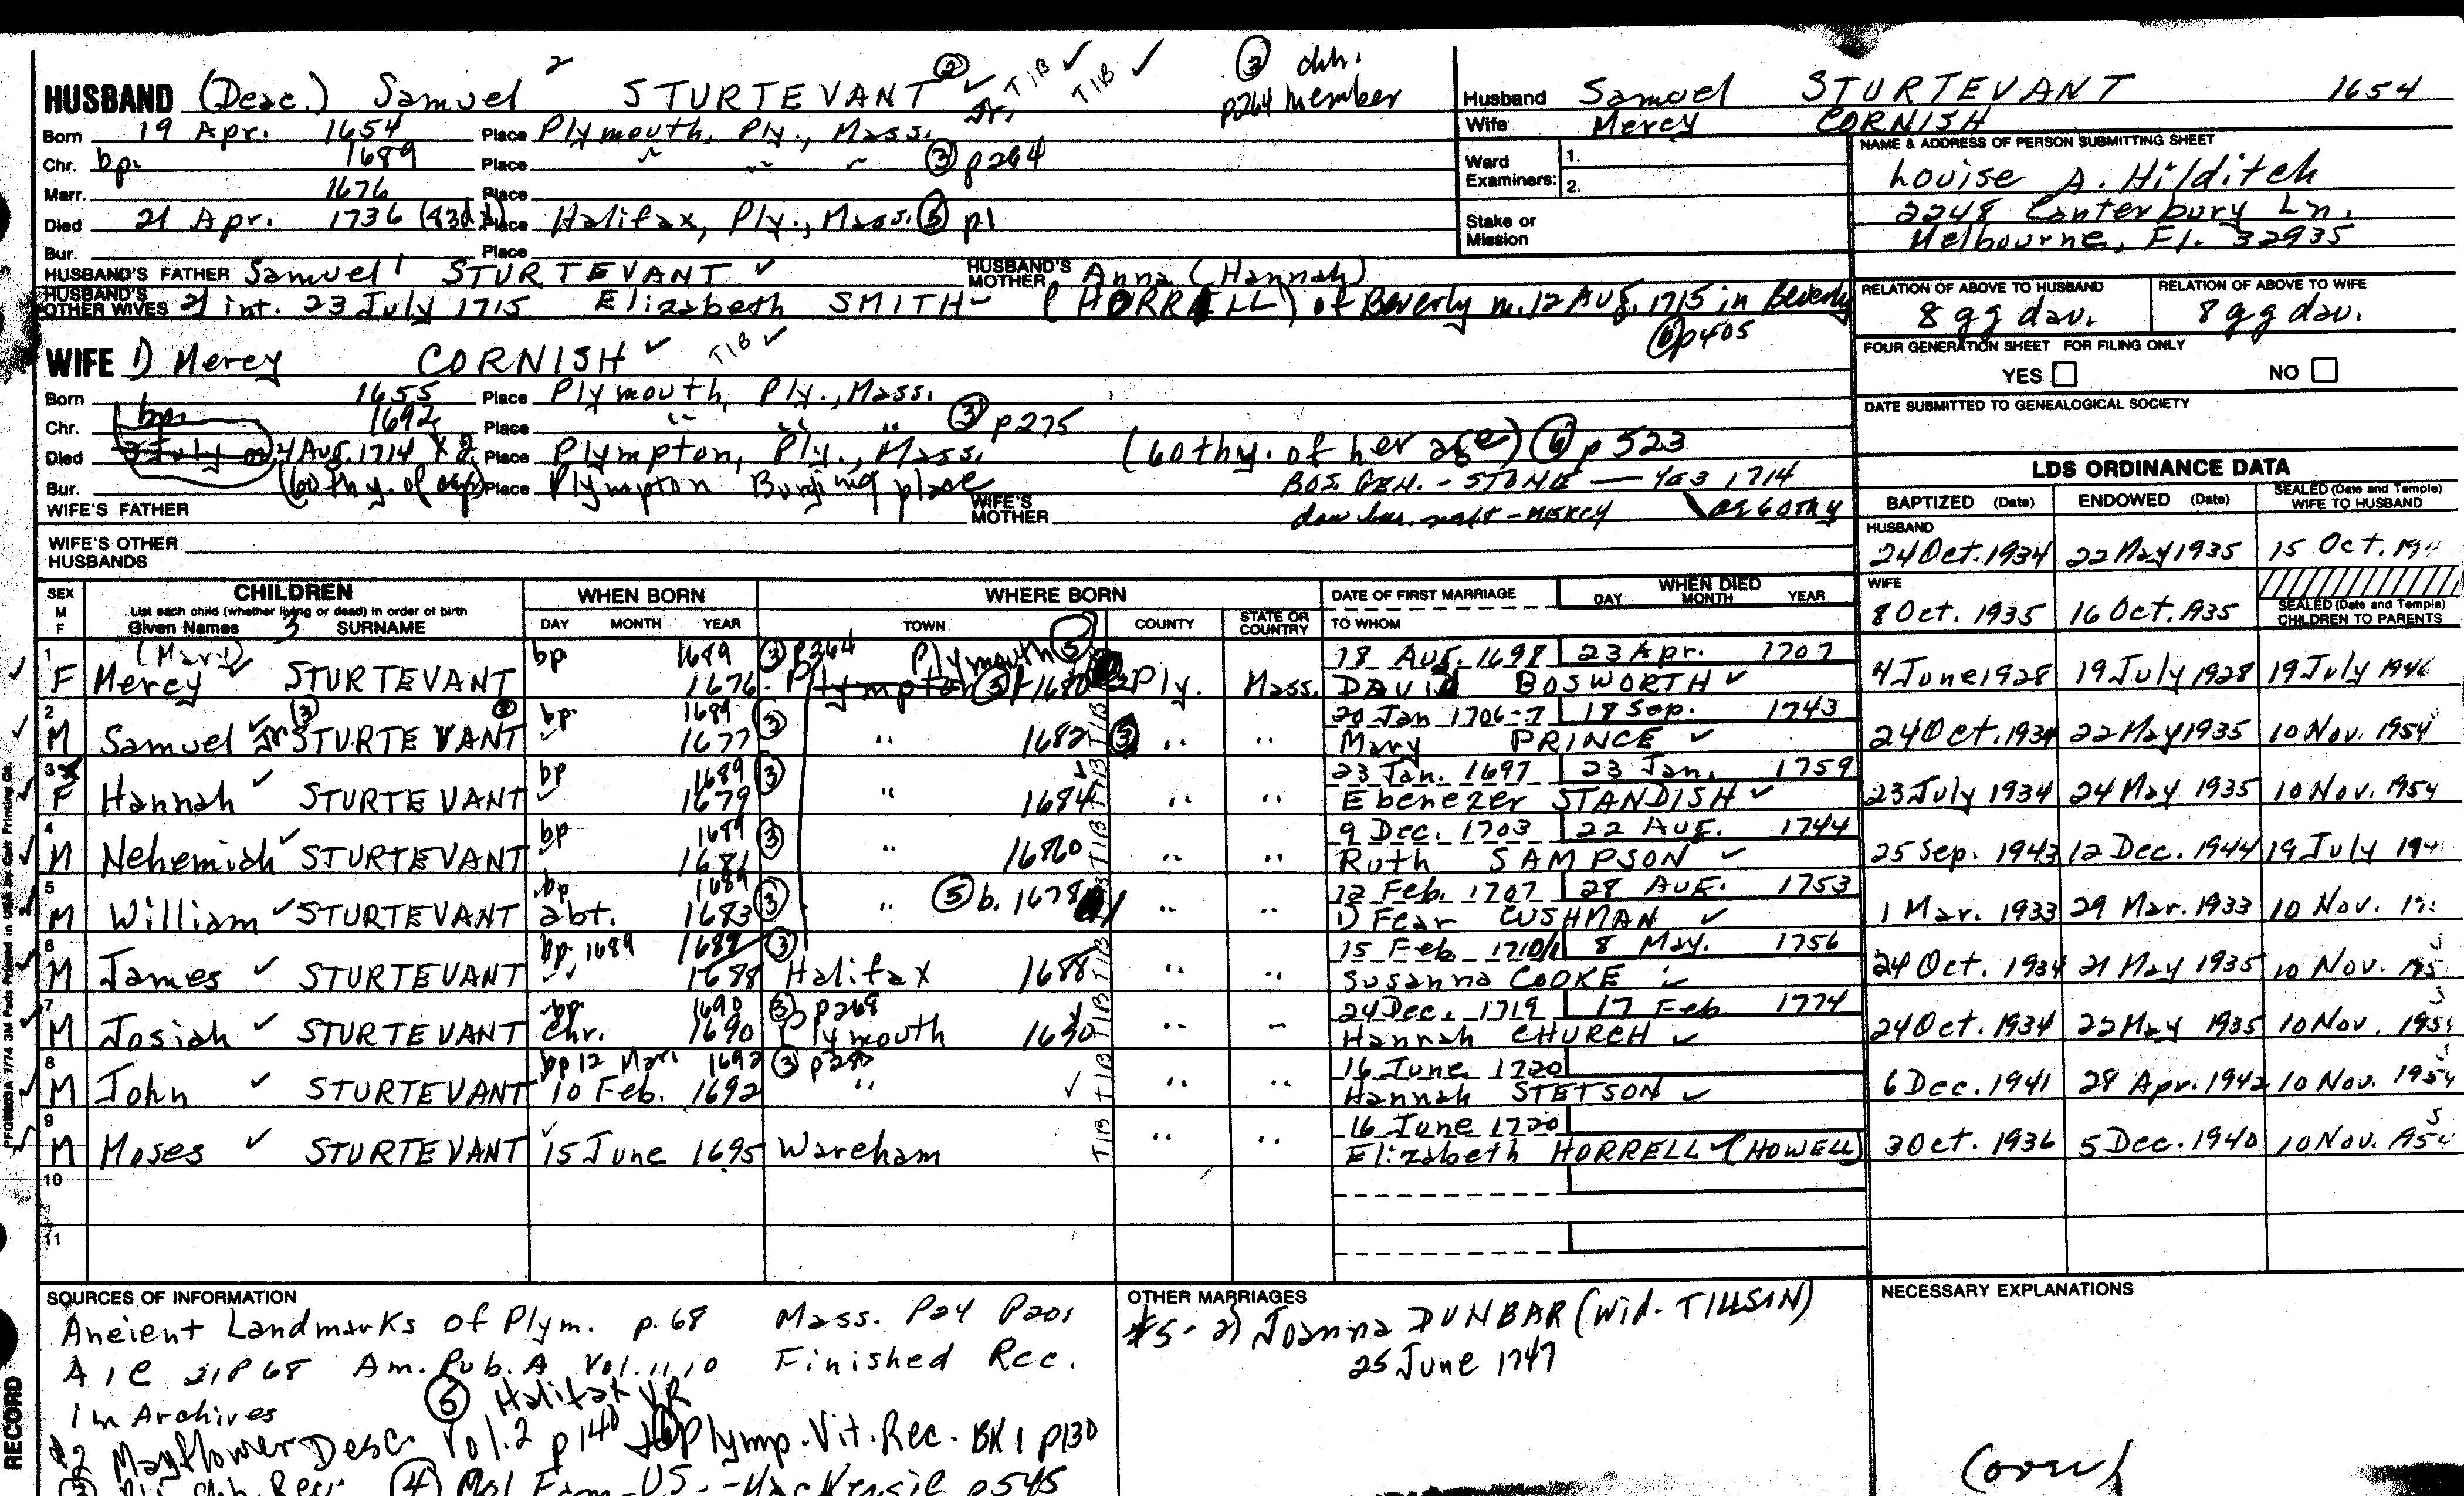 HUSBAND (Deac.) Samuel 2 STURTEVANT (2) ✓ Jr. TIB ✓ TIB ✓ (3) chh. p264 member
Born 19 Apr. 1654 Place Plymouth, Ply., Mass.
Chr. bp. 1689 Place " " " (3) p264
Marr. 1676 Place
Died 21 Apr. 1736 (83d y) Place Halifax, Ply., Mass. (5) p1
Bur. Place
HUSBAND'S FATHER Samuel 1 STURTEVANT ✓ HUSBAND'S MOTHER Anna (Hannah)
HUSBAND'S OTHER WIVES 2) int. 23 July 1715 Elizabeth SMITH (HORRELL) of Beverly m. 12 Aug. 1715 in Beverly
(6) p405
WIFE 1) Mercy CORNISH ✓ TIB ✓
Born 1655 Place Plymouth, Ply., Mass.
Chr. bp. 1692 Place " " " (3) p275
Died 3 July or 4 Aug. 1714 Place Plympton, Ply., Mass. (60th y. of her age) (6) p523
Bur. (60th y. of age) Place Plympton Burying place BOS. GEN. - STONE 1714
WIFE'S FATHER WIFE'S MOTHER MERCY
WIFE'S OTHER HUSBANDS
Husband Samuel STURTEVANT 1654
Wife Mercy CORNISH
Ward Examiners: 1. 2.
Stake or Mission
NAME & ADDRESS OF PERSON SUBMITTING SHEET
Louise A. Hilditch
2248 Canterbury Ln.
Melbourne, Fl. 32935
RELATION OF ABOVE TO HUSBAND RELATION OF ABOVE TO WIFE
8 gg dau. 8 gg dau.
FOUR GENERATION SHEET FOR FILING ONLY
YES NO
DATE SUBMITTED TO GENEALOGICAL SOCIETY
LDS ORDINANCE DATA
BAPTIZED (Date) ENDOWED (Date) SEALED (Date and Temple) WIFE TO HUSBAND
HUSBAND
24 Oct. 1934 22 May 1935 15 Oct.
WIFE
8 Oct. 1935 16 Oct. 1935
SEALED (Date and Temple) CHILDREN TO PARENTS
SEX M F CHILDREN List each child (whether living or dead) in order of birth Given Names 3 SURNAME WHEN BORN DAY MONTH YEAR WHERE BORN TOWN COUNTY STATE OR COUNTRY DATE OF FIRST MARRIAGE TO WHOM WHEN DIED DAY MONTH YEAR
1 (Mary) bp 1689 (3) p264 Plymouth (5) 18 Aug. 1698 23 Apr. 1707
F Mercy ✓ STURTEVANT 1676 Plympton (3) 1680 Ply. Mass. DAVID BOSWORTH ✓ 4 June 1928 19 July 1928 19 July 1946
2 bp. 1689 (3) 20 Jan 1706-7 18 Sep. 1743
M Samuel Jr. (3) STURTEVANT 1677 " 1682 TIB (3) " " Mary PRINCE ✓ 24 Oct. 1934 22 May 1935 10 Nov. 1954
3 bp 1689 (3) 23 Jan. 1697 23 Jan. 1759
F Hannah ✓ STURTEVANT 1679 " 1684 TIB " " Ebenezer STANDISH ✓ 23 July 1934 24 May 1935 10 Nov. 1954
4 bp 1689 (3) 9 Dec. 1703 22 Aug. 1744
M Nehemiah ✓ STURTEVANT 1681 " TIB " " Ruth SAMPSON ✓ 25 Sep. 1943 12 Dec. 1944 19 July
5 bp 1689 (3) 12 Feb. 1707 28 Aug. 1753
M William ✓ STURTEVANT abt. 1683 " (5) b. 1678 " " 1) Fear CUSHMAN ✓ 1 Mar. 1933 29 Mar. 1933 10 Nov.
6 bp. 1689 (3) 15 Feb 1710/1 8 May. 1756
M James ✓ STURTEVANT 1688 Halifax 1688 TIB " " Susanna COOKE ✓ 24 Oct. 1934 21 May 1935 10 Nov.
7 bp. 1690 (3) p268 24 Dec. 1719 17 Feb 1774
M Josiah ✓ STURTEVANT Chr. 1690 Plymouth 1690 TIB " " Hannah CHURCH ✓ 24 Oct. 1934 22 May 1935 10 Nov. 1954
8 bp 12 Mar. 1692 (3) 16 June 1720
M John ✓ STURTEVANT 10 Feb. 1692 " ✓ TIB " " Hannah STETSON ✓ 6 Dec. 1941 28 Apr. 1942 10 Nov. 1954
9 16 June 1720
M Moses ✓ STURTEVANT 15 June 1695 Wareham TIB " " Elizabeth HORRELL ✓ (HOWELL) 3 Oct. 1936 5 Dec. 1940 10 Nov. 1954
10
11
SOURCES OF INFORMATION
Ancient Landmarks of Plym. p. 68 Mass. P24 P201
A1C 21P68 Am. Pub. A Vol. 11, 10 Finished Rec.
in Archives (5) Halifax VR
#2 Mayflower Desc. Vol. 2 p140 (6) Plymp. Vit. Rec. BK 1 p130
(3) Ply. Chh. Rec. (4) Col. Fam. US. - MacKensie p545
OTHER MARRIAGES
#5 - 2) Joanna DUNBAR (wid. TILLSON)
25 June 1747
NECESSARY EXPLANATIONS
(over)
PFGS003A 7/74 3M Pads Printed in USA by Carr Printing Co.
RECORD